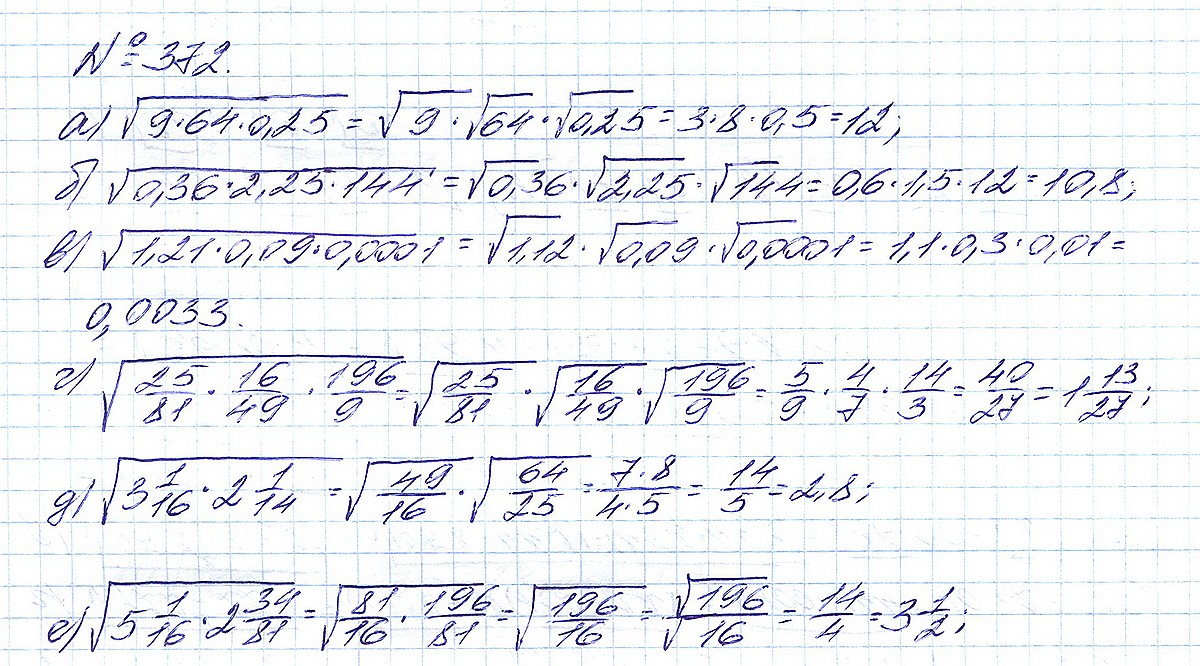 № 372.
а) √(9·64·0,25) = √9·√64·√0,25 = 3·8·0,5 = 12;
б) √(0,36·2,25·144) = √0,36·√2,25·√144 = 0,6·1,5·12 = 10,8;
в) √(1,21·0,09·0,0001) = √1,12·√0,09·√0,0001 = 1,1·0,3·0,01 =
0,0033.
г) √(25/81·16/49·196/9) = √(25/81)·√(16/49)·√(196/9) = 5/9·4/7·14/3 = 40/27 = 1 13/27;
д) √(3 1/16·2 1/14) = √(49/16)·√(64/25) = 7·8/4·5 = 14/5 = 2,8;
е) √(5 1/16·2 34/81) = √(81/16·196/81) = √(196/16) = √196/√16 = 14/4 = 3 1/2;